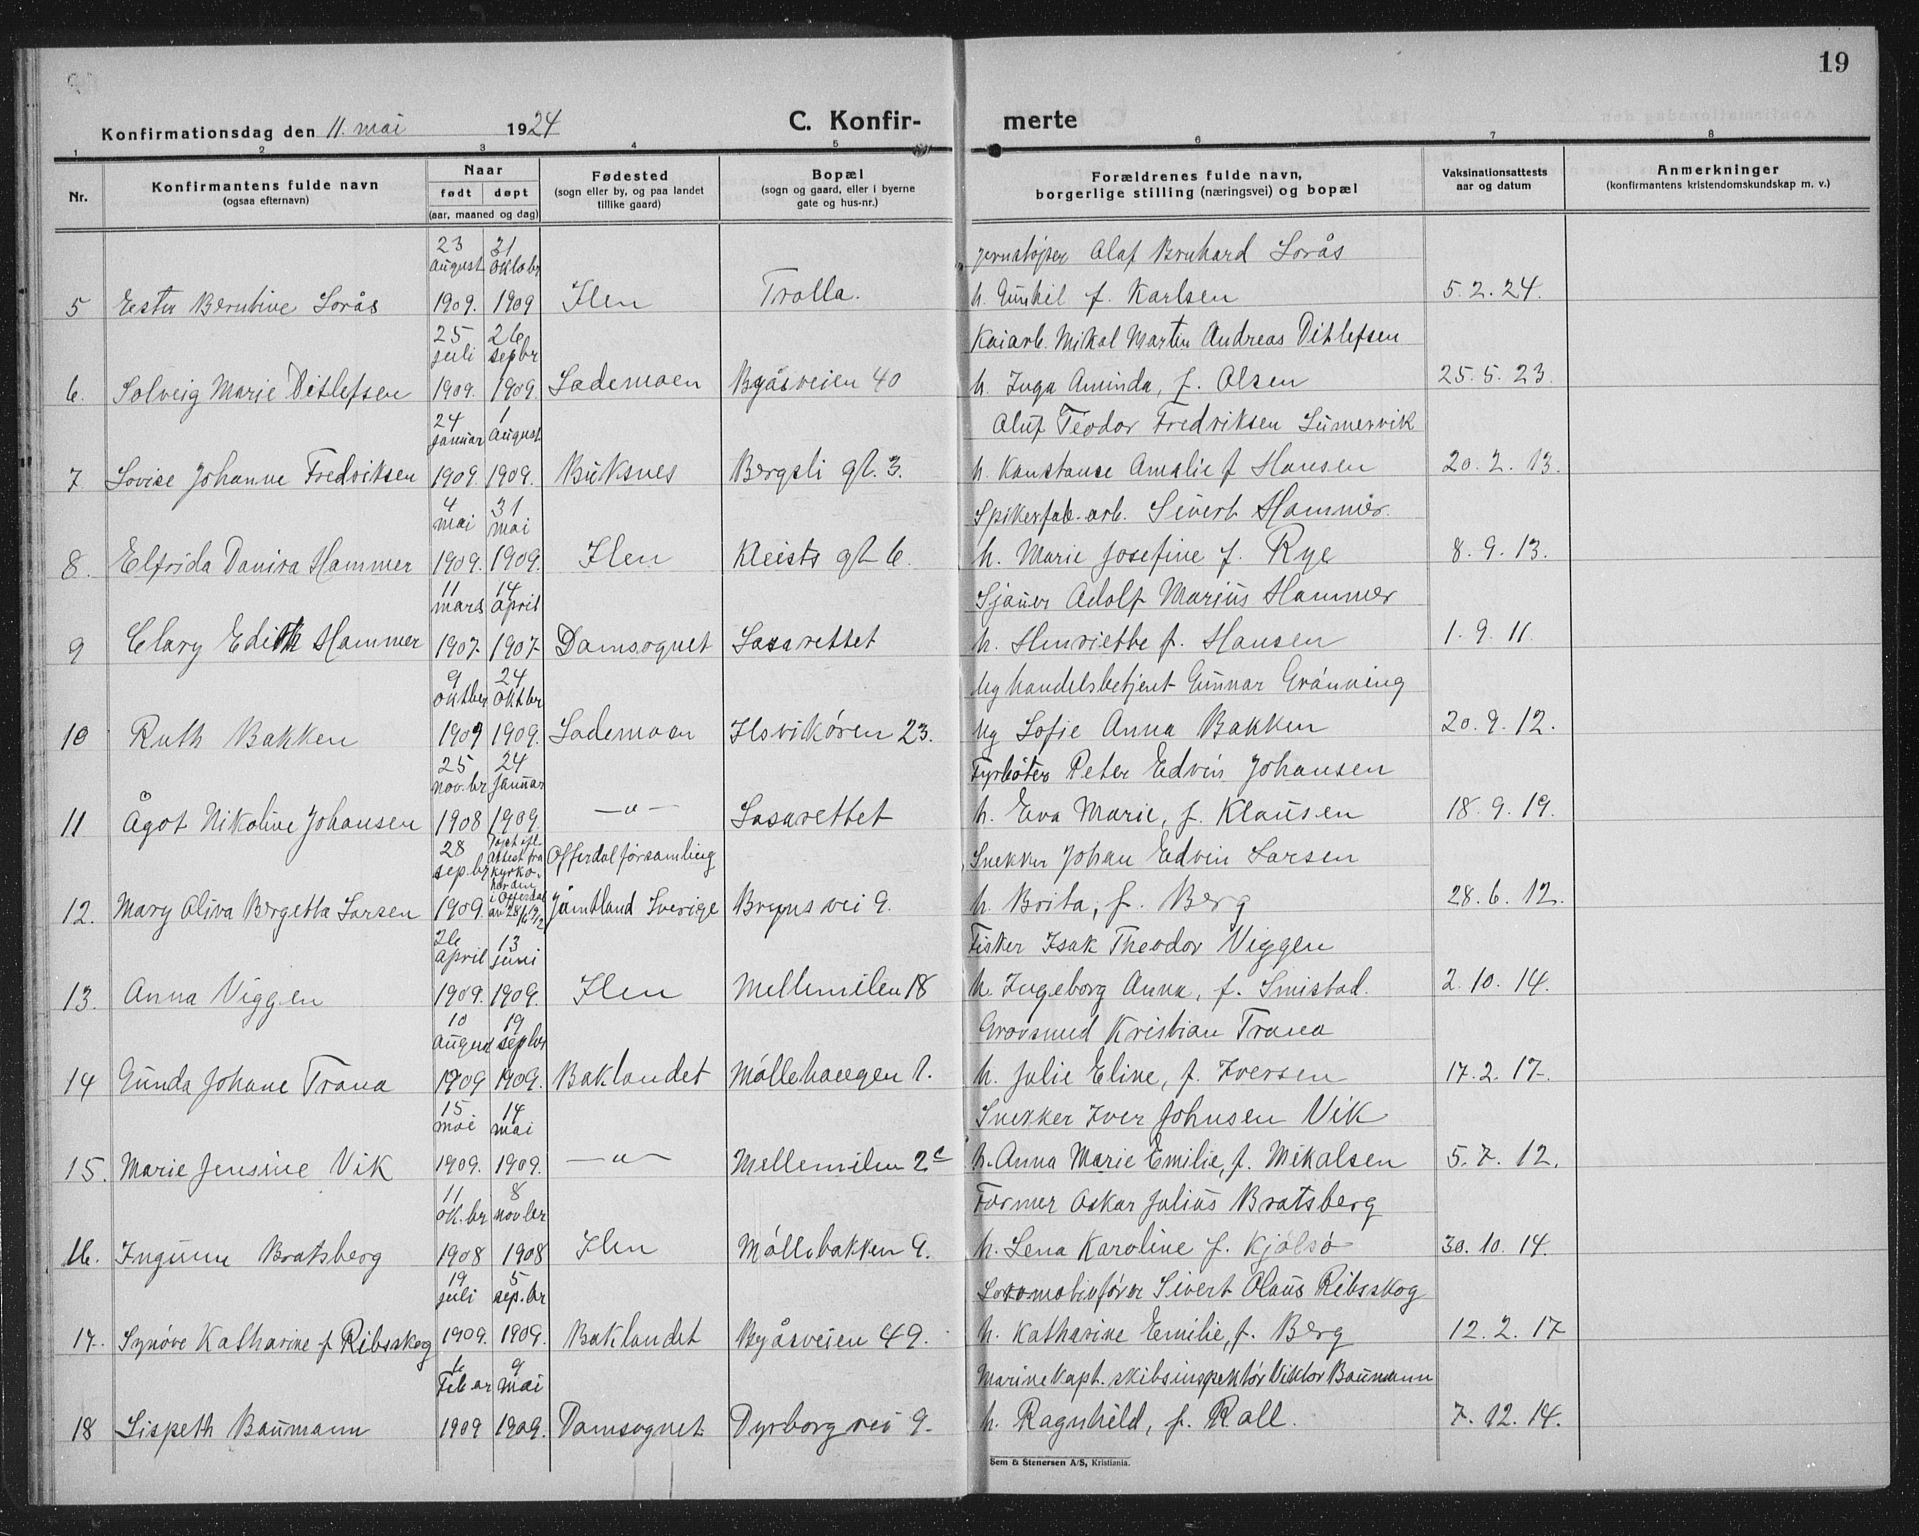 19
Konfirmationsdag den 11. mai 1924 C. Konfir- merte
1 2 3 4 5 6 7 8
Nr. Konfirmantens fulde navn (ogsaa efternavn) Naar født døpt (aar, maaned og dag) Fødested (sogn eller by, og paa landet tillike gaard) Bopæl (sogn og gaard, eller i byerne gate og hus-nr.) Forældrenes fulde navn, borgerlige stilling (næringsvei) og bopæl Vaksinationsattests aar og datum Anmerkninger (konfirmantens kristendomskundskap m. v.)
23 august 31 oktobr Olaf Bernhard Sorås
5 Ester Berntine Sorås 1909. 1909 Ilen Trolla. h. Gunhil f. Karlsen 5.2.24.
25 juli 26 sepbr Kaiarb. Mikal Martin Andreas Ditlefsen
6. Solveig Marie Ditlefsen 1909. 1909. Lademoen Byåsveien 40 h. Inga Aminda, f. Olsen 25.5.23.
24 januar 1 august Aluf Teodor Fredriksen Sumervik
7. Lovise Johanne Fredriksen 1909. 1909. Buksnes Bergsli gt. 3. h. Konstanse Amalie f Hansen 20.2.13.
4 mai 31 mai Spikerfab. arb. Sivert Hammer.
8. Elfrida Danira Hammer 1909. 1909. Ilen Kleists gt 6. h. Marie Josefine f. Rye 8.9.13.
11 mars 14 april Sjauer Adolf Marius Hammer
9 Clary Edith Hammer 1907. 1907. Domsognet Lasarettet h. Henriette f. Hansen 1.9.11.
9 oktber 24 oktber Ug handelsbetjent Gunnar Grønning
10 Ruth Bakken 1909 1909. Lademoen Ilsvikøren 23. Ug Sofie Anna Bakken 20.9.12.
25 nov.br 24 januar Fyrbøter Peter Edvin Johansen
11 Ågot Nikoline Johansen 1908 1909. —"— Lasarettet h. Eva Marie, f. Klausen 18.9.19.
28 sep.br Døpt ifl. attest fra kyrko- i Offerdal Offerdal församling Snekker Johan Edvin Larsen
12. Mary Oliva Bergetta Larsen 1909. Jämtland Sverige Brynsvei 9. h. Brita, f. Berg 28.6.12.
26 april 13 juni Fisker Isak Theodor Viggen
13. Anna Viggen 1909. 1909. Ilen Mellemilen 18 h. Ingeborg Anna, f. Smistad. 2.10.14.
10 august 19 sepber Grovsmed Kristian Trana
14 Gunda Johane Trana 1909 1909. Baklandet Møllehaugen 1. h. Julie Eline, f. Iversen 17.2.17.
15 mai 14 mai Snekker Iver Johnsen Vik
15. Marie Jensine Vik 1909. 1909. —"— Mellemilen 2c h. Anna Marie Emilie, f. Mikalsen 5.7.12.
11 ok.br 8 novber Former Oskar Julius Bratsberg
16. Ingunn Bratsberg 1908 1908 Ilen Møllebakken 9. h. Lena Karoline f. Kjølsø 30.10.14.
19 juli 5 sep.br Lokomotivfører Sivert Olaus Ribsskog
17. Synøve Katharine f Ribsskog 1909. 1909. Baklandet Byåsveien 49. h. Katharine Emilie, f. Berg 12.2.17
6 Febar 9 mai Marinekapt. skibsinspektør Viktor Baumann
18 Lispeth Baumann 1909 1909. Domsognet Dyrborg vei 9. h. Ragnhild, f. Roll. 7.12.14.
Sem & Stenersen A/S, Kristiania.